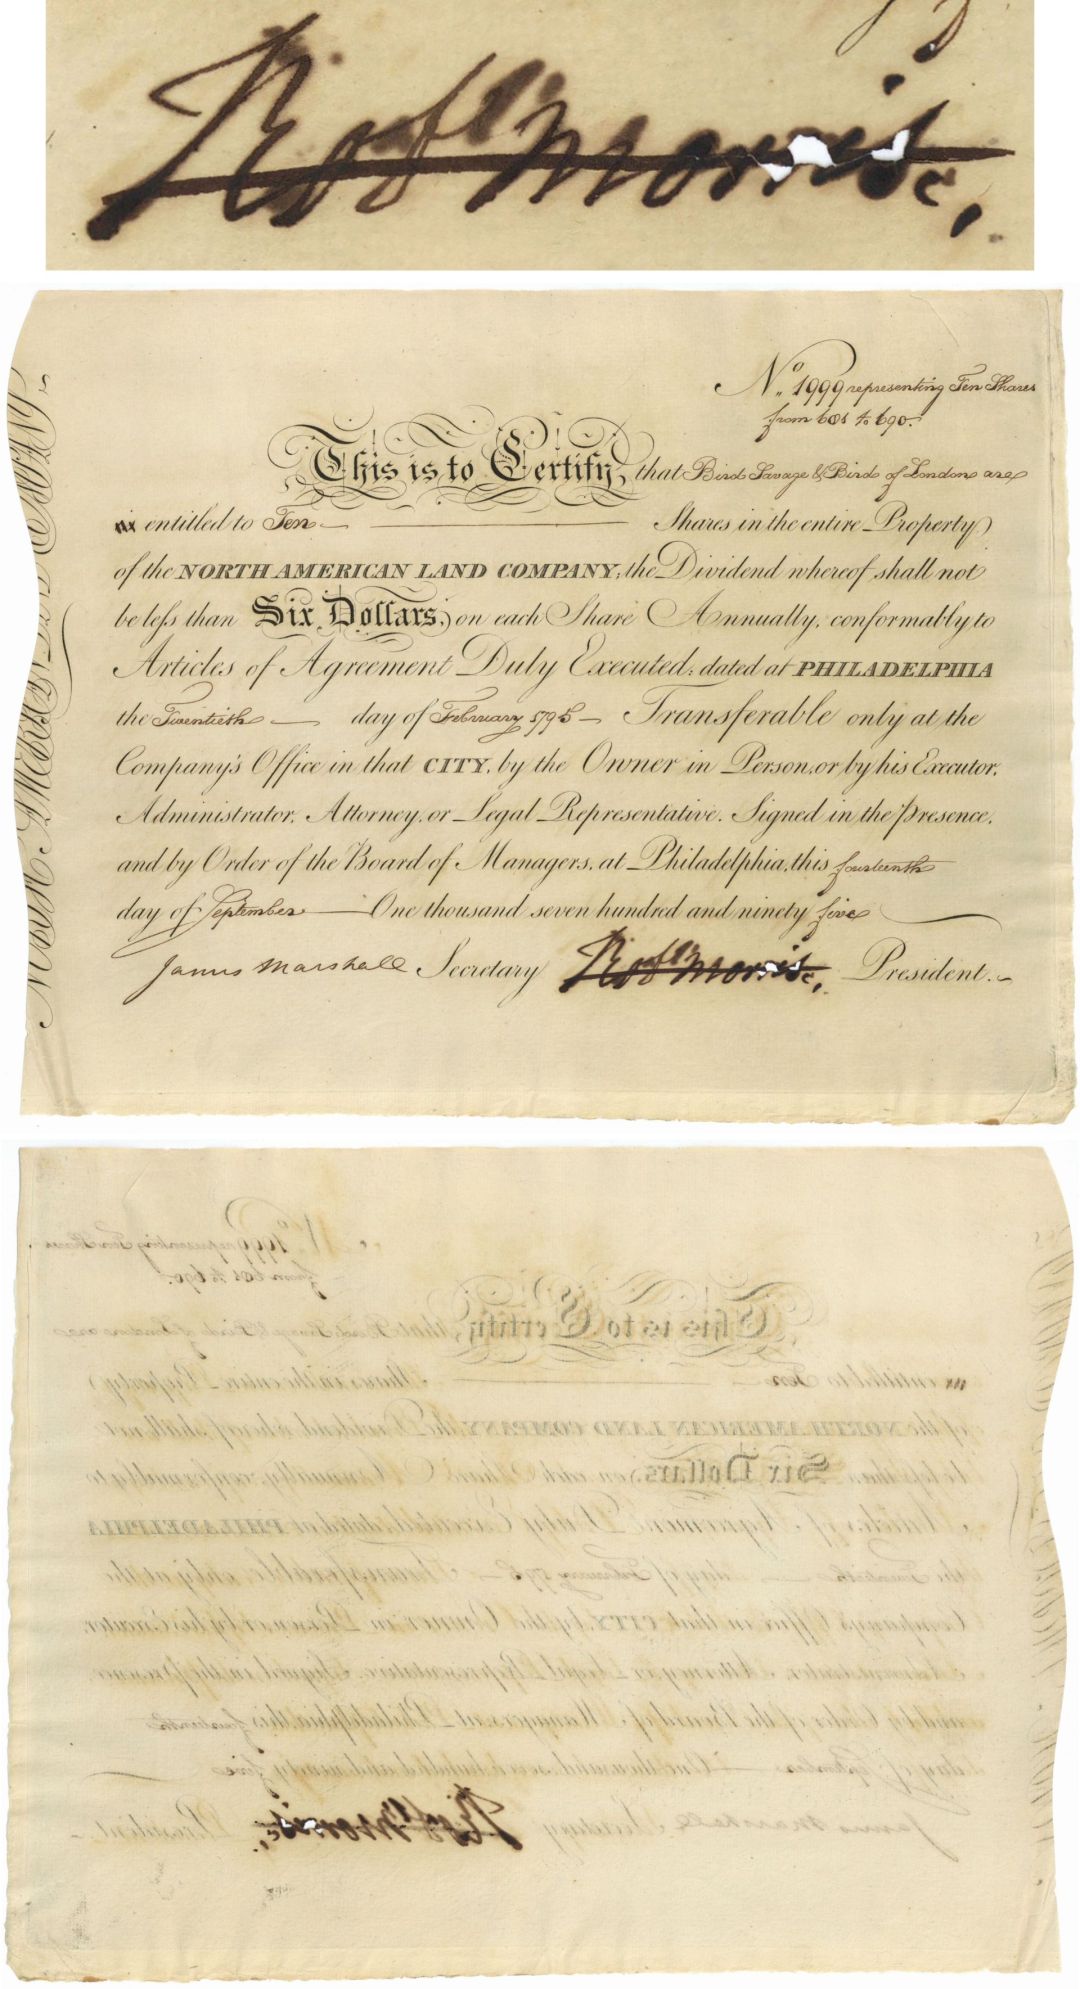 Robt Morris
No. 1999 representing Ten Shares
from 681 to 690.
This is to Certify, that Bird Savage & Bird of London are
entitled to Ten Shares in the entire Property
of the NORTH AMERICAN LAND COMPANY; the Dividend whereof shall not
be leſs than Six Dollars, on each Share Annually, conformably to
Articles of Agreement Duly Executed; dated at PHILADELPHIA
the Twentieth day of February 1795 Transferable only at the
Company's Office in that CITY, by the Owner in Person, or by his Executor,
Administrator, Attorney, or Legal Representative. Signed in the presence,
and by Order of the Board of Managers, at Philadelphia, this fourteenth
day of September One thousand seven hundred and ninety five
James Marshall Secretary Robt Morris President.